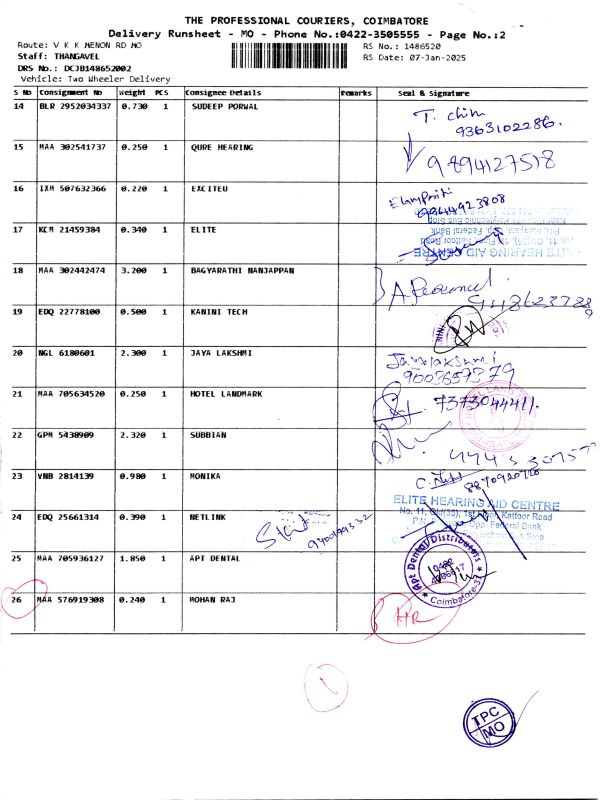 THE PROFESSIONAL COURIERS, COIMBATORE
Delivery Runsheet - MO - Phone No.:0422-3505555 - Page No.:2
Route: V K K MENON RD MO
RS No.: 1486520
Staff: THANGAVEL
RS Date: 07-Jan-2025
DRS No.: DCJB148652002
Vehicle: Two Wheeler Delivery
S No Consignment No Weight PCS Consignee Details Remarks Seal & Signature
14 BLR 2952034337 0.730 1 SUDEEP PORWAL
9363102286.
15 MAA 302541737 0.250 1 QURE HEARING
9894127518
16 IXM 507632366 0.220 1 EXCITEU
9944923808
17 KCM 21459384 0.340 1 ELITE
ELITE HEARING AID CENTRE
18 MAA 302442474 3.200 1 BAGYARATHI NANJAPPAN
19 EDQ 22778100 0.500 1 KANINI TECH
20 NGL 6180601 2.300 1 JAYA LAKSHMI
Jayalakshmi
9003657379
21 MAA 705634520 0.250 1 HOTEL LANDMARK
7373044411.
22 GPM 5438909 2.320 1 SUBBIAN
23 VNB 2814139 0.980 1 MONIKA
24 EDQ 25661314 0.390 1 NETLINK
ELITE HEARING AID CENTRE
No. 11, Old(35), 1st Floor, Kattoor Road
Opp. Federal Bank
25 MAA 705936127 1.850 1 APT DENTAL
Apt Dental Distributors
Coimbatore-37
26 MAA 576919308 0.240 1 MOHAN RAJ
HR
1
TPC
MO